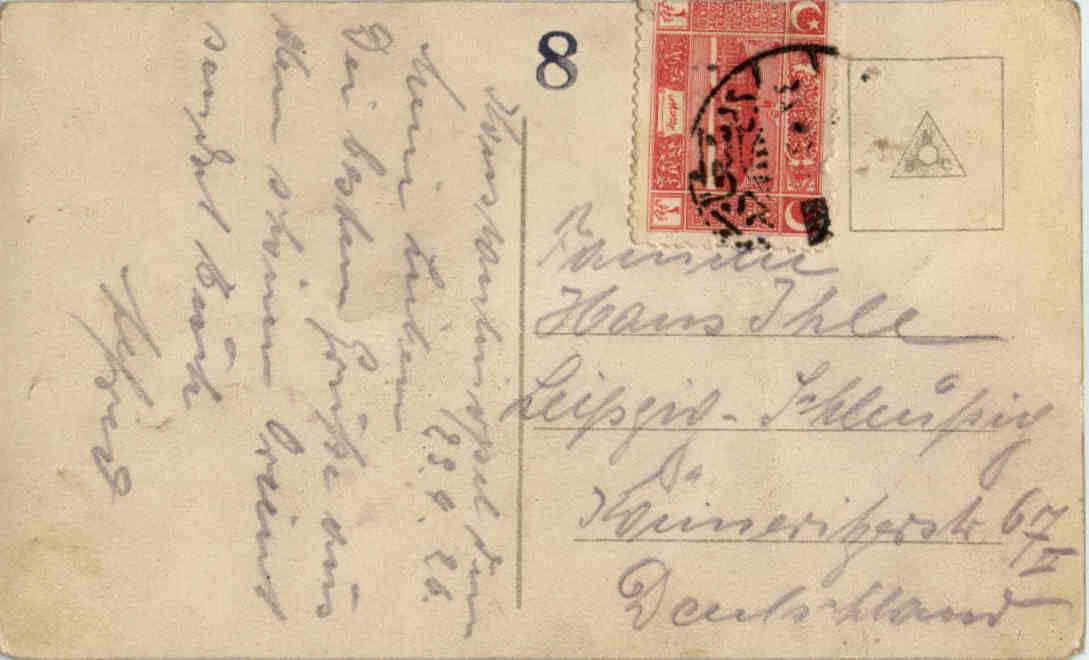 8
Konstantinopel den
23.9.26.
Meine Lieben
Die besten Grüße aus
dem schönen Orient
sendet Euch
Alfred
Familie
Hans Ihle
Leipzig-Schleußig
Könneritzerstr 67/II
Deutschland